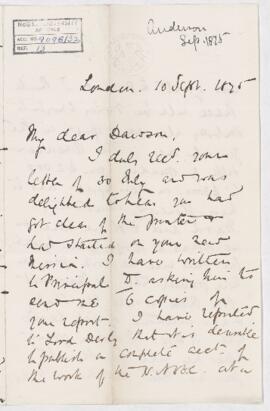 Anderson
Sep. 1875
ACC. NO. 9098/32
REF. 13
London. 10 Sept. 1875
My dear Dawson,
I duly recd. your
letter of 30 July and was
delighted to hear you had
got clear of the printer &
had started on your new
mission. I have written
to Principal D. asking him to
send me 6 copies of
your report. I have reported
to Lord Derby that it is desirable
to publish a complete acct. of
the work of the N.A.B.C. at a